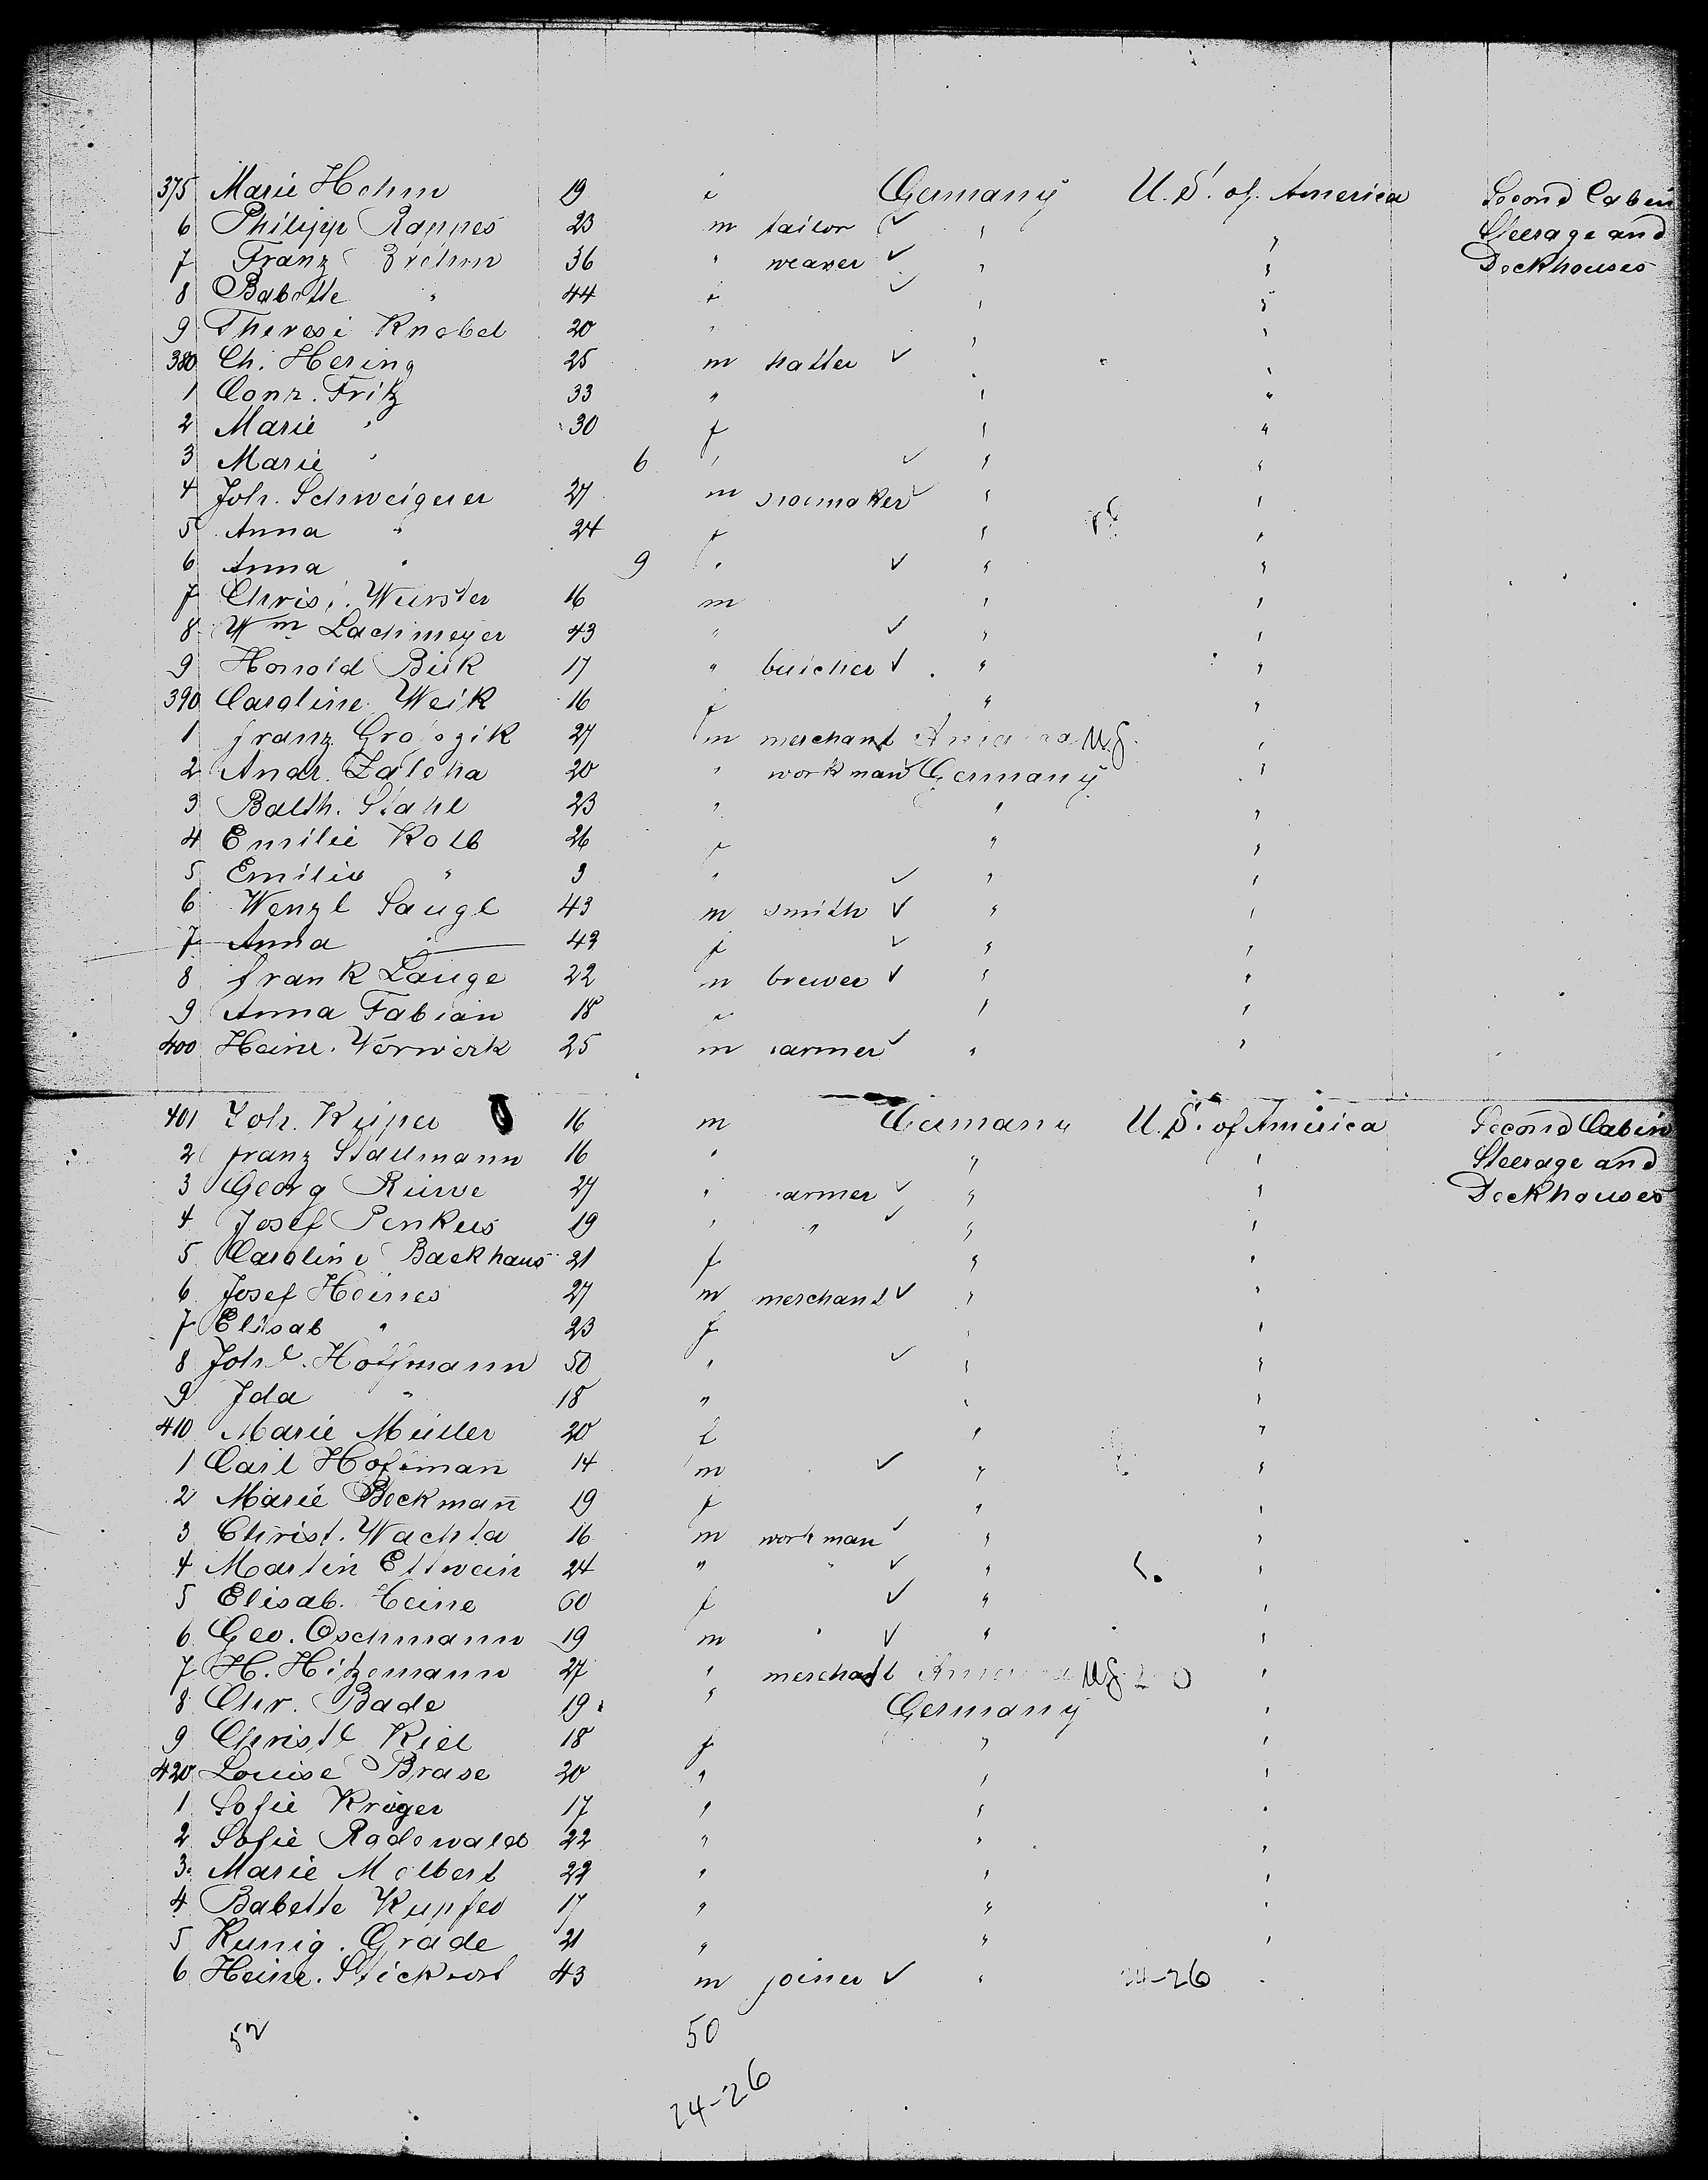 375 Marie Hohm 19 f Germany U.S. of America Second Cabin
6 Philipp Rappes 23 m tailor ✓ " " Steerage and
7 Franz Brehm 36 " weaver ✓ " " Deckhouses
8 Babette " 44 f ✓ " "
9 Therese Knobel 20 " " "
380 Ch. Hering 25 m hatter ✓ " "
1 Conr. Fritz 33 " " "
2 Marie " 30 f " "
3 Marie " 6 " ✓ " "
4 Joh. Schweigerer 27 m shoemaker ✓ " "
5 Anna " 24 f " "
6 Anna " 9 " ✓ " "
7 Christ. Wurster 16 m " "
8 Wm Lachmeyer 43 " ✓ " "
9 Honold Birk 17 " butcher ✓ " "
390 Caroline Weik 16 f " "
1 Franz 27 m merchant America "
2 Andr. Zaleha 20 " workman ✓ Germany "
3 Balth. Stahl 23 " " "
4 Emilie Kolb 26 f " "
5 Emilie " 3 " ✓ " "
6 Wenzl Saugl 43 m smith ✓ " "
7 Anna " 43 f ✓ " "
8 Frank Lauge 22 m brewer ✓ " "
9 Anna Fabian 18 f " "
400 Heinr. Vorwerk 25 m farmer ✓ " "
401 Joh. Kuper 16 m Germany U.S. of America Second Cabin
2 Franz Stallmann 16 " " " Steerage and
3 Georg Ruwe 27 " farmer ✓ " " Deckhouses
4 Josef Penkus 19 " " ✓ " "
5 Caroline Backhaus 21 f " "
6 Josef Heines 27 m merchant ✓ " "
7 Elisab " 23 f " "
8 Johe. Hoffmann 50 " ✓ " "
9 Ida " 18 " " "
410 Marie Müller 20 f " "
1 Carl Hofman 14 m ✓ " "
2 Marie Bockmañ 19 f " "
3 Christ. Wachta 16 m workman ✓ " "
4 Martin Ettwein 24 " " ✓ " "
5 Elisab. Heine 60 f ✓ " "
6 Geo. Oschmann 19 m " ✓ " "
7 H. Hitzemann 27 " merchant America "
8 Chr. Bade 19 " Germany "
9 Christe Kiel 18 f " "
420 Louise Brase 20 " " "
1 Sofie Kröger 17 " " "
2 Sofie Radewald 22 " " "
3 Marie Molbert 22 " " "
4 Babette Kupfer 17 " " "
5 Kunig. Grade 21 " " "
6 Heinr. 43 m joiner ✓ " 24-26 "
52 50
24-26